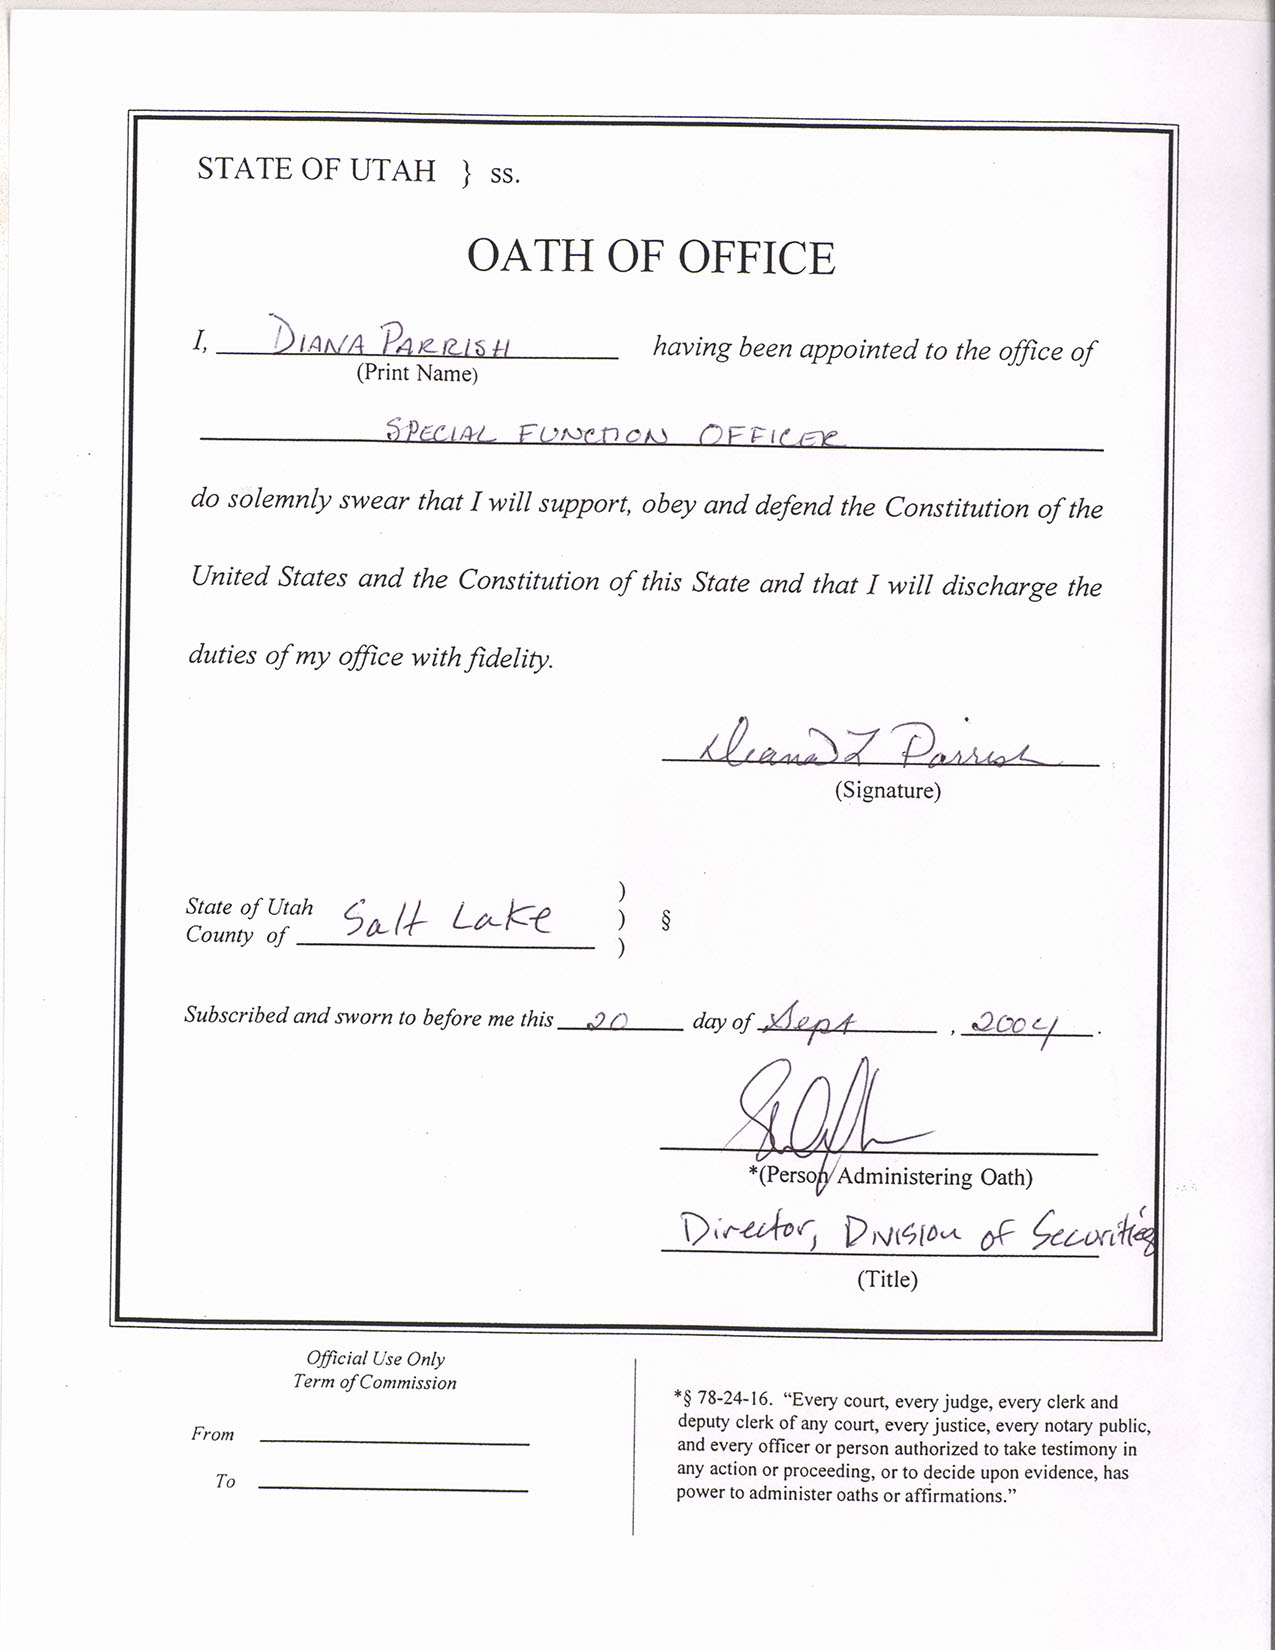 STATE OF UTAH } ss.
OATH OF OFFICE
I, DIANA PARRISH having been appointed to the office of
(Print Name)
SPECIAL FUNCTION OFFICER
do solemnly swear that I will support, obey and defend the Constitution of the
United States and the Constitution of this State and that I will discharge the
duties of my office with fidelity.
Diana L Parrish
(Signature)
State of Utah )
County of Salt Lake ) §
)
Subscribed and sworn to before me this 20 day of Sept , 2004 .
*(Person Administering Oath)
Director, Division of Securities
(Title)
Official Use Only
Term of Commission
From
To
*§ 78-24-16. “Every court, every judge, every clerk and
deputy clerk of any court, every justice, every notary public,
and every officer or person authorized to take testimony in
any action or proceeding, or to decide upon evidence, has
power to administer oaths or affirmations.”